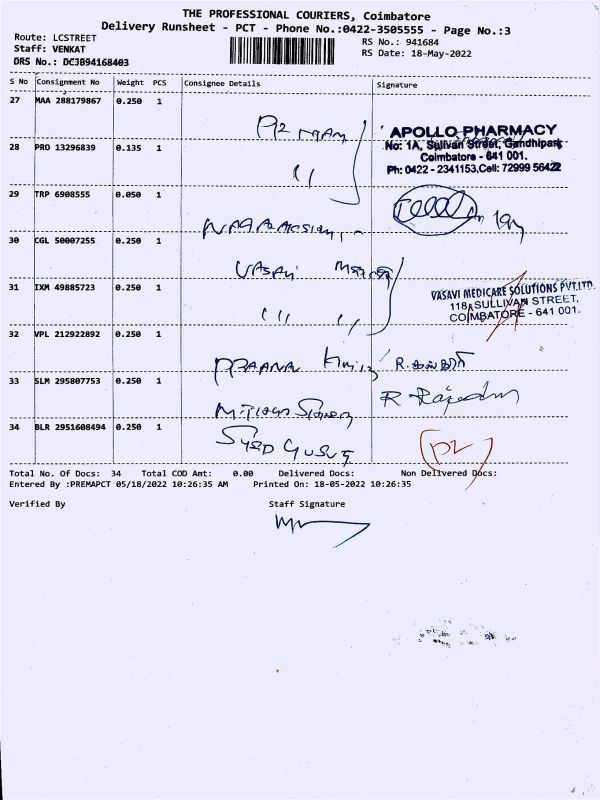 THE PROFESSIONAL COURIERS, Coimbatore
Delivery Runsheet - PCT - Phone No.:0422-3505555 - Page No.:3
Route: LCSTREET
RS No.: 941684
Staff: VENKAT
RS Date: 18-May-2022
DRS No.: DCJB94168403
S No Consignment No Weight PCS Consignee Details Signature
27 MAA 288179867 0.250 1
APOLLO PHARMACY
No: 1A, Sullivan Street, Gandhipark
28 PRO 13296839 0.135 1
Coimbatore - 641 001.
Ph: 0422 - 2341153, Cell: 72999 56422
29 TRP 6908555 0.050 1
30 CGL 50007255 0.250 1
VASAVI
31 IXM 49885723 0.250 1
VASAVI MEDICARE SOLUTIONS PVT.LTD.
118, SULLIVAN STREET,
COIMBATORE - 641 001.
32 VPL 212922892 0.250 1
33 SLM 295807753 0.250 1
34 BLR 2951608494 0.250 1
Total No. Of Docs: 34 Total COD Amt: 0.00 Delivered Docs: Non Delivered Docs:
Entered By :PREMAPCT 05/18/2022 10:26:35 AM Printed On: 18-05-2022 10:26:35
Verified By Staff Signature